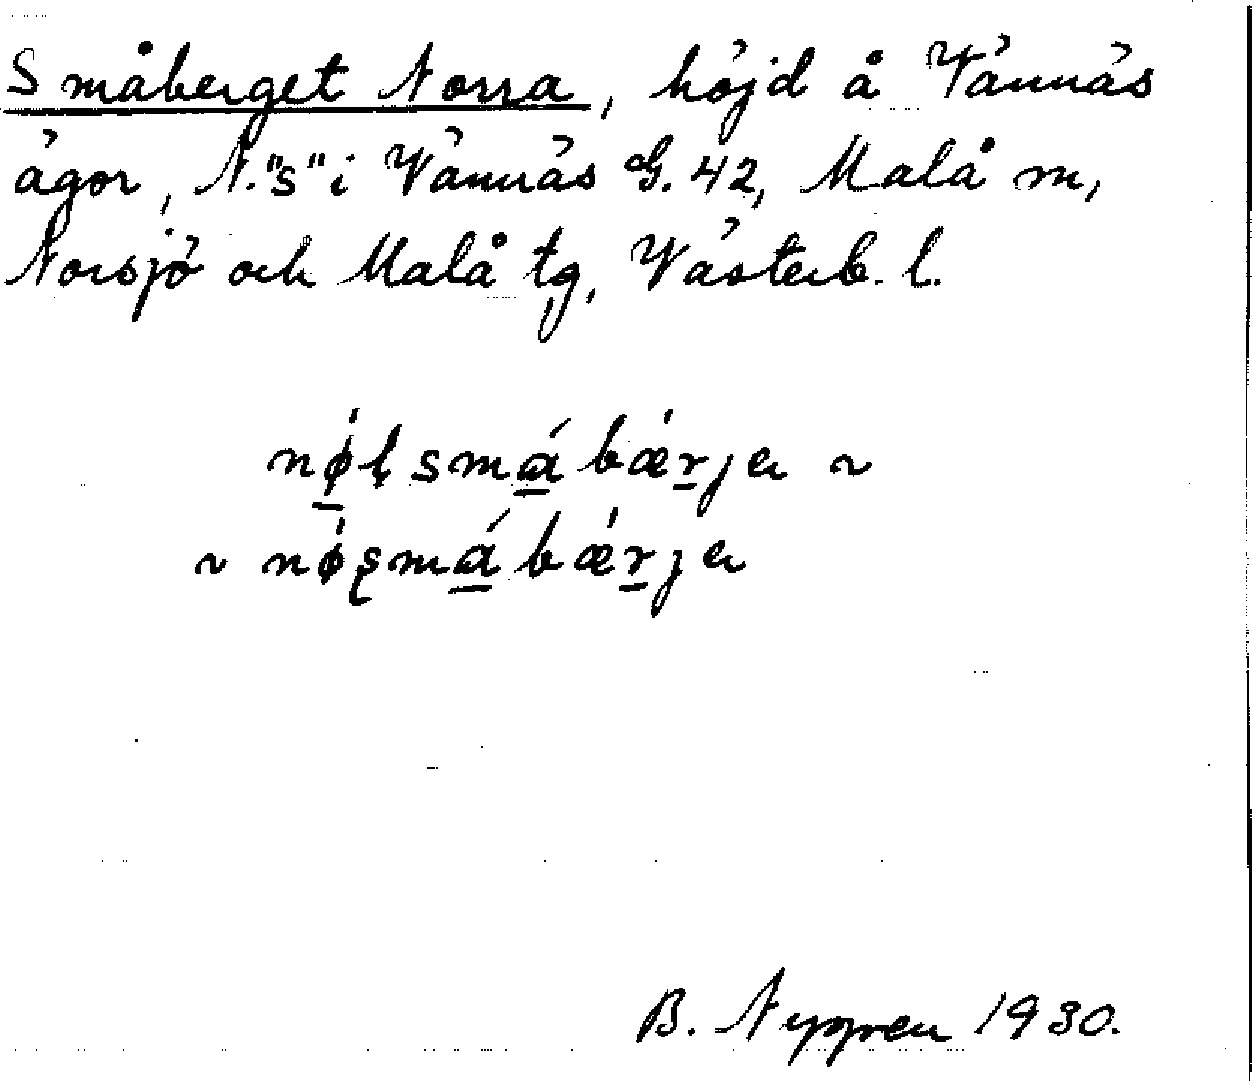 Småberget Norra, höjd å Vännäs
ägor, N. "s" i Vännäs G. 42, Malå sn,
Norsjö och Malå tg, Västerb. l.
nǿ̱ḷsmá̱̱bǽṟja ~
~ nǿʂmá̱̱bǽṟja
B. Nygren 1930.